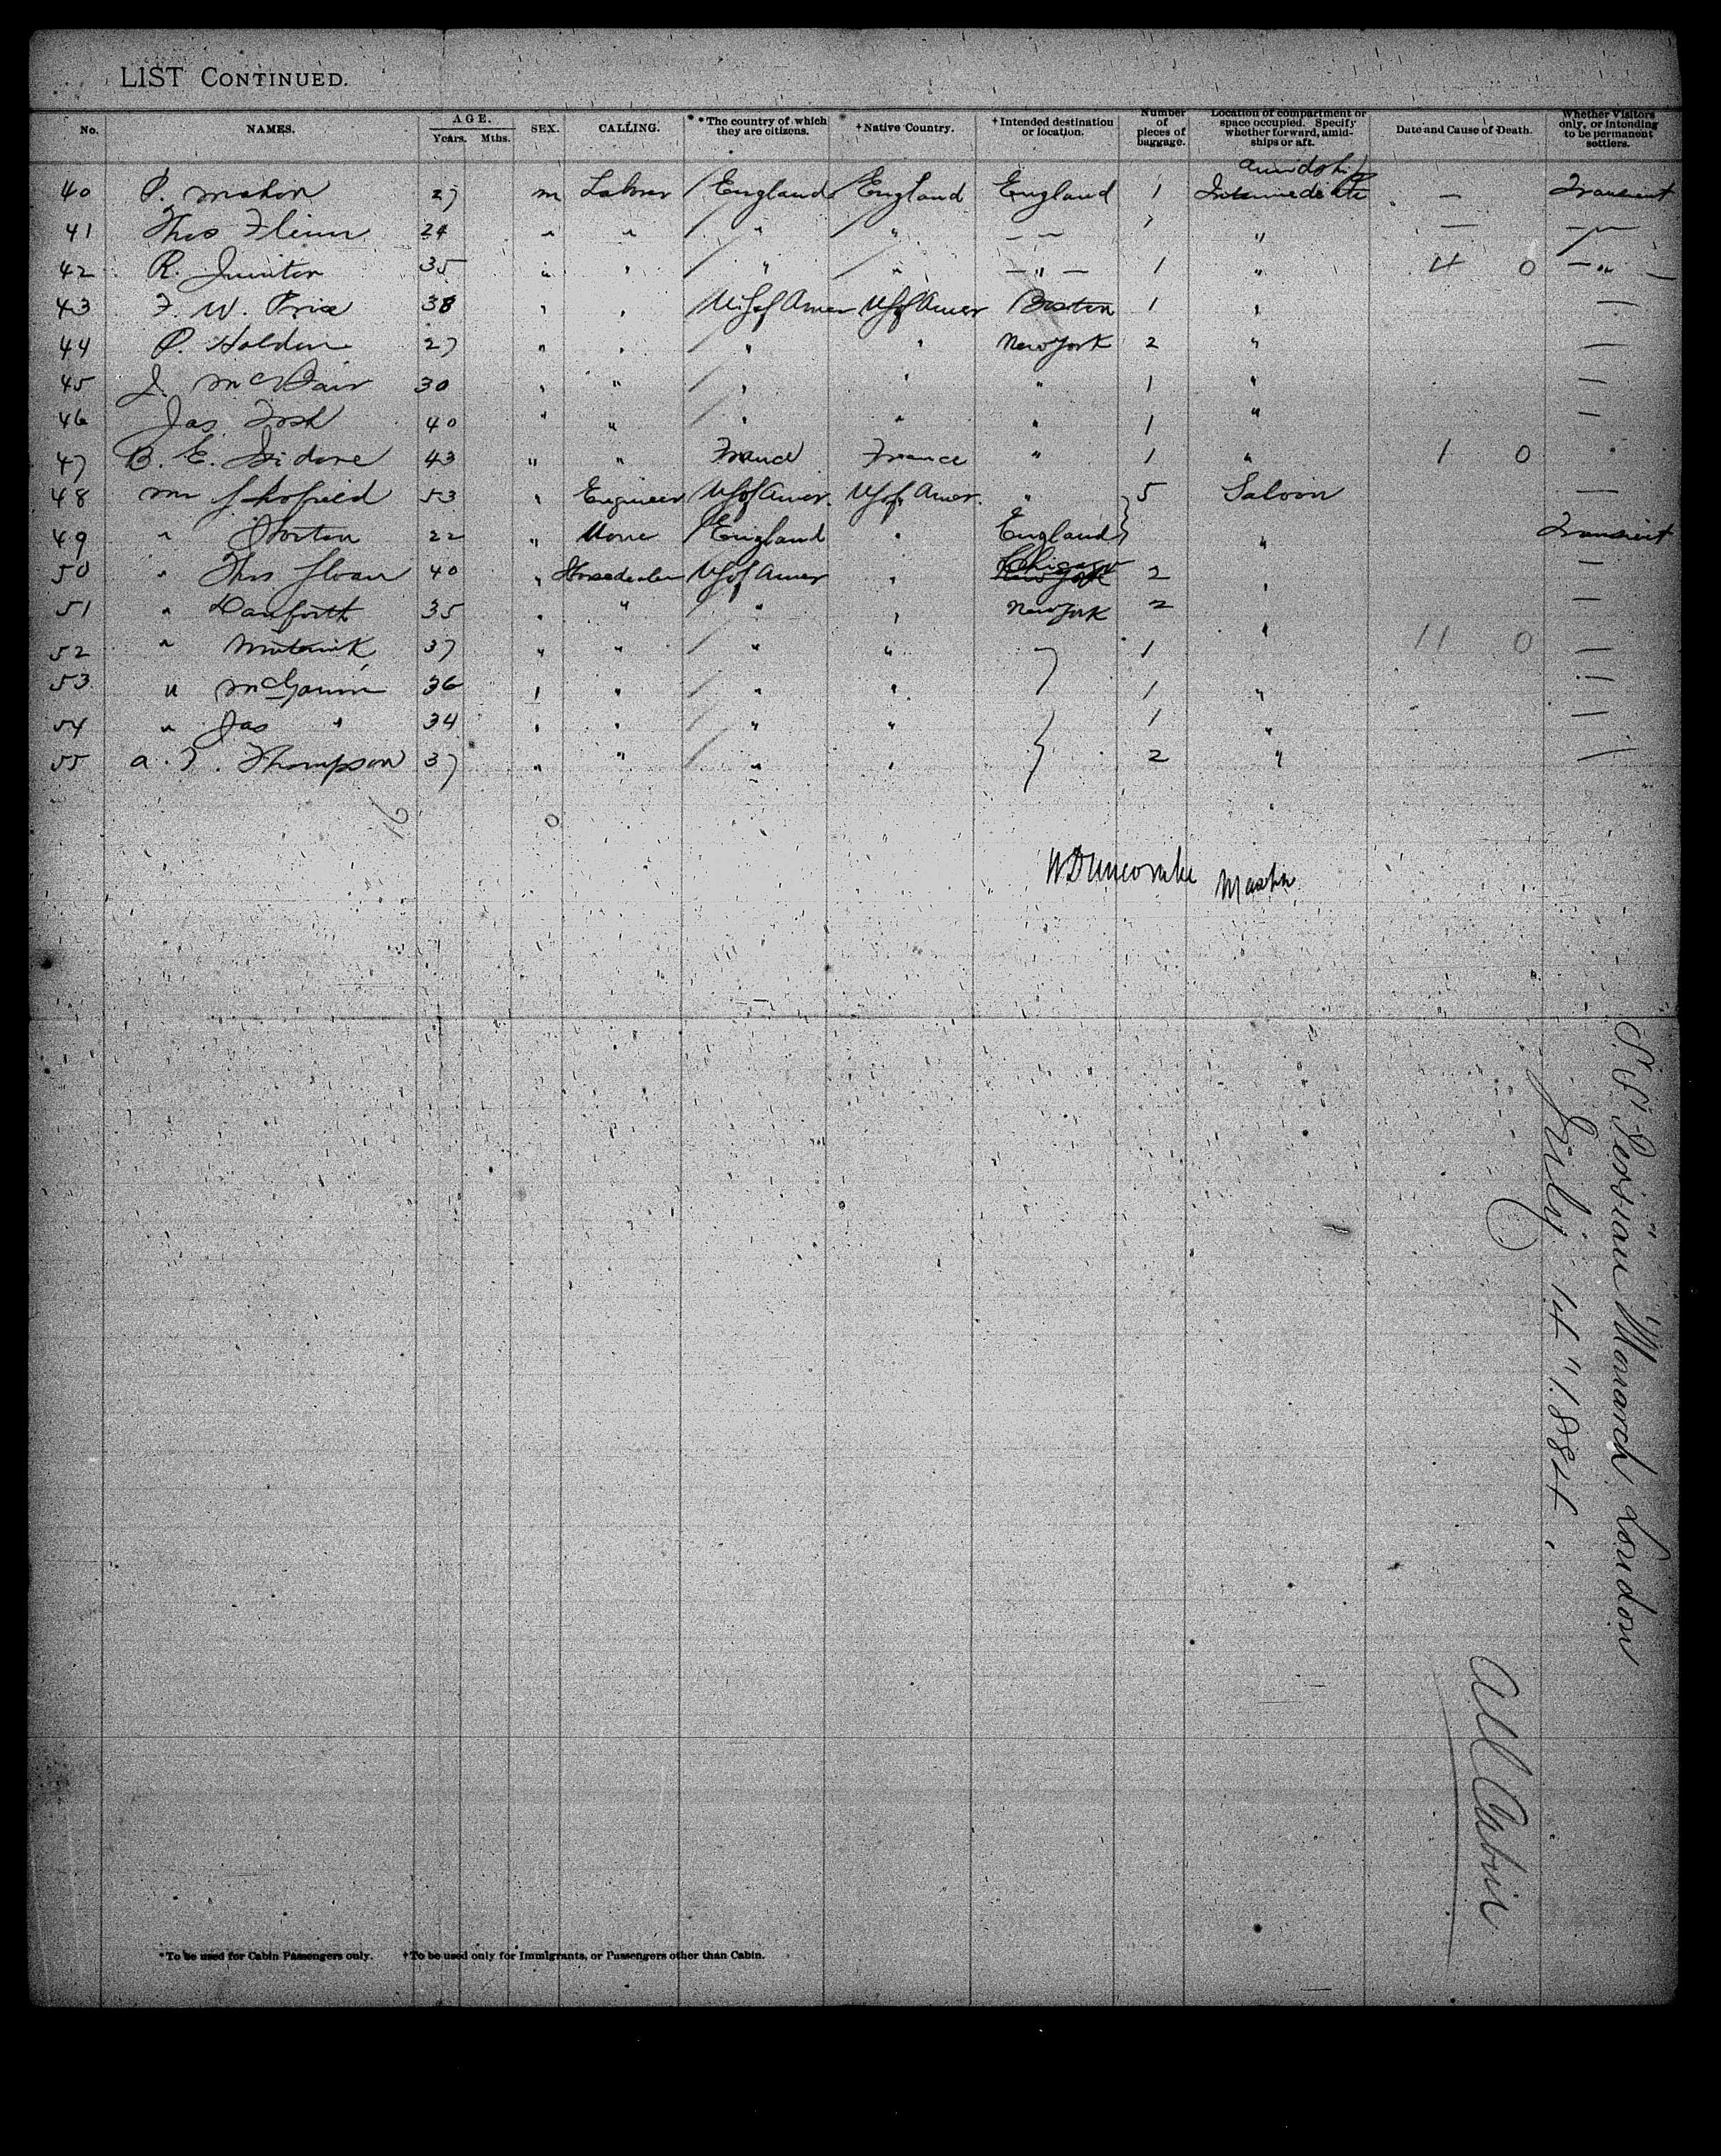 LIST CONTINUED.
No. NAMES. AGE. Years. Mths. SEX. CALLING. *The country of which they are citizens. †Native Country. †Intended destination or location. Number of pieces of baggage. Location of compartment or space occupied. Specify whether forward, amidships or aft. Date and Cause of Death. Whether Visitors only, or intending to be permanent settlers.
Amidship
40 P. Mahon 27 m Labrer / England / England England 1 Intermediate — Transient
41 Thos 24 " " / " / " — " — 1 " — — " —
42 R. 35 " " / " / " — " — 1 " 4 0 — " —
43 F. W. Price 38 " " U.S of Amer U S of Amer Boston 1 " —
44 P. Holden 27 " " / " " New York 2 " —
45 J. 30 " " / " " " 1 " —
46 Jas 40 " " / " " " 1 " —
47 B. E. Isidore 43 " " France France " 1 " 1 0
48 Mr Schofield 53 " Engineer U S of Amer. U S of Amer. " } 5 Saloon —
49 " Horton 22 " None / England " England } " Transient
50 " Thos Sloan 40 " Horsedealer U S of Amer " Chicago New York 2 " —
51 " Danforth 35 " " / " " New York 2 " —
52 " 37 " " / " " } 1 " 11 0 —
53 " 36 " " / " " 1 " —
54 " Jas " 34 " " / " " } 1 " —
55 A. T. Thompson 37 " " / " " 2 " —
16 0
W Duncombe Master
S. S. "Persian Monarch" London
July 14" 1884.
All Cabin
*To be used for Cabin Passengers only. †To be used only for Immigrants, or Passengers other than Cabin.